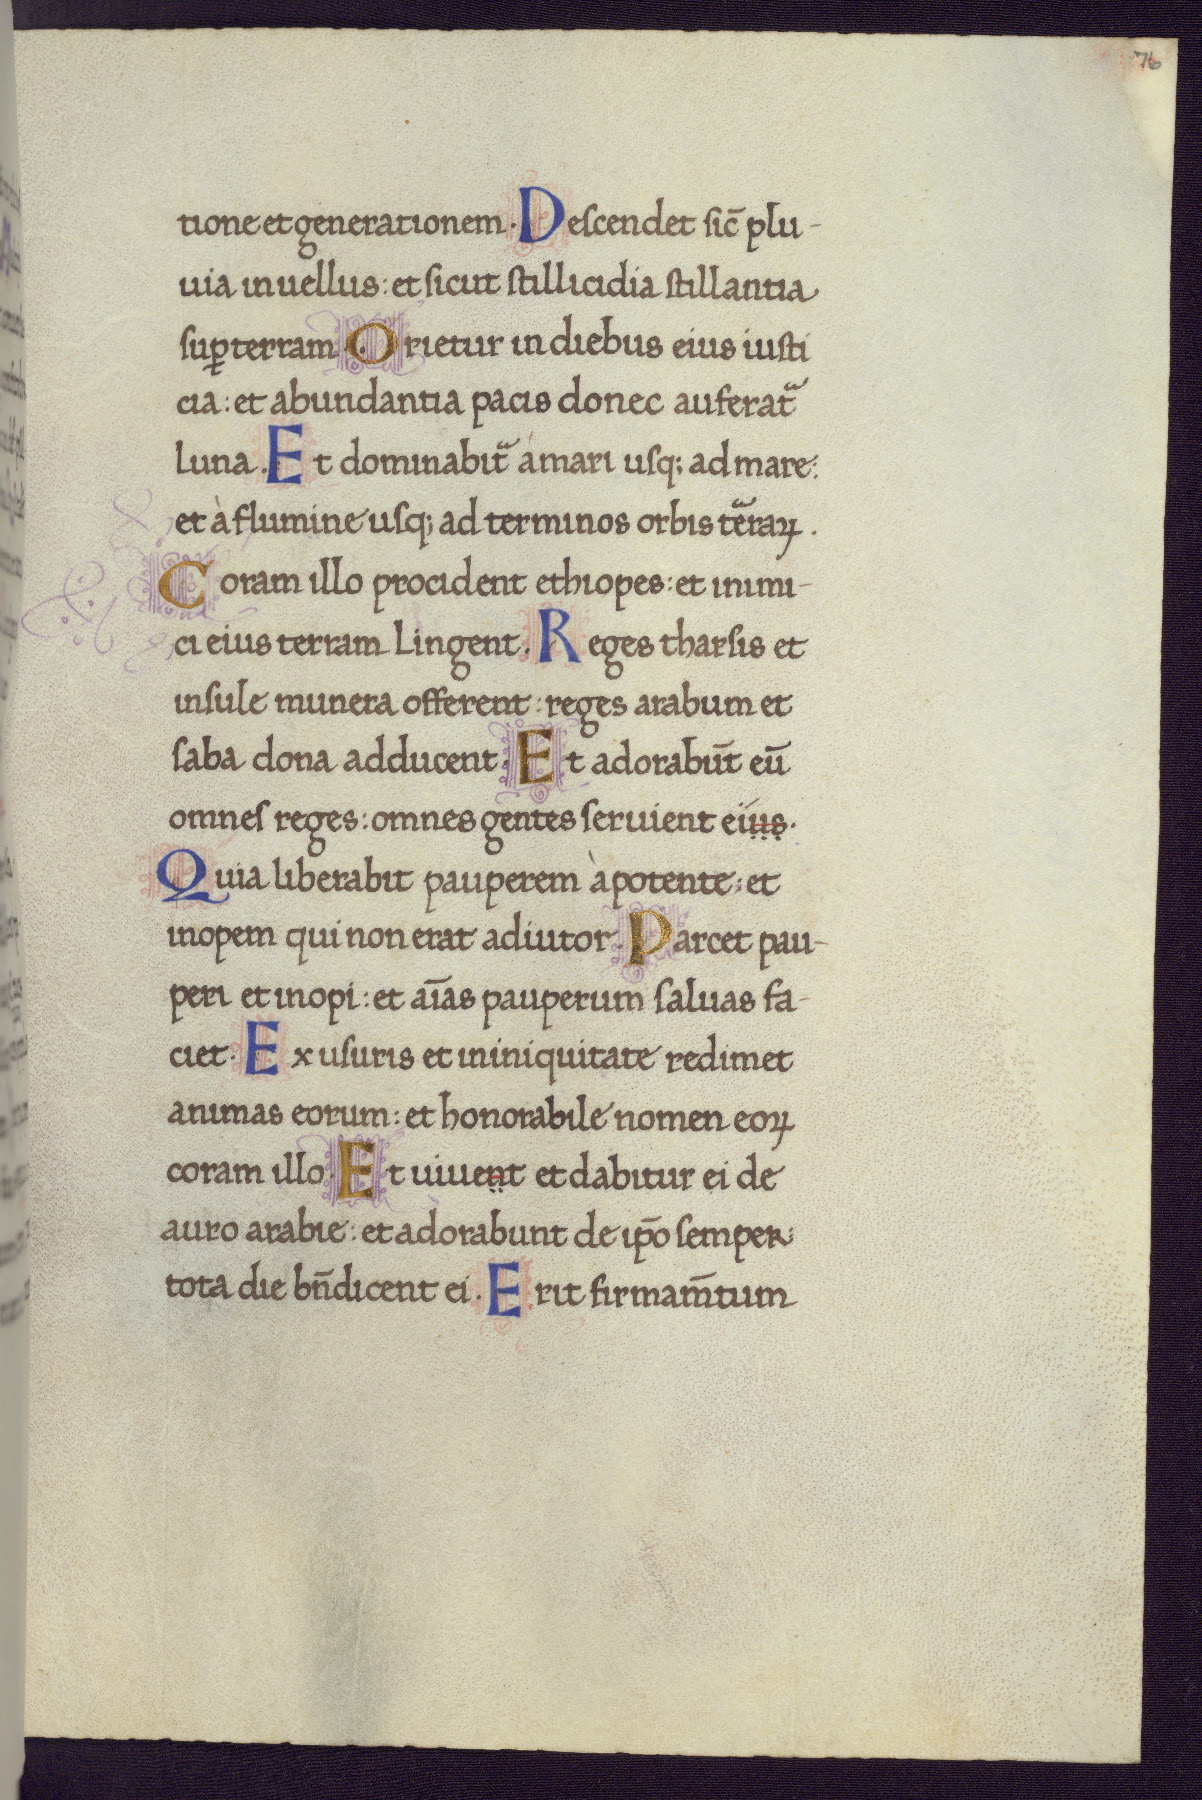 76
tione et generationem. Descendet sic̄ plu-
uia in uellus: et sicut stillicidia stillantia
suꝑ terram. Orietur in diebus eius iusti
cia: et abundantia pacis donec auferatᷓ
luna. Et dominabitᷓ á mari usq; ad mare:
et à flumine usq; ad terminos orbis teᷓraꝝ.
Coram illo procident ethiopes: et inimi-
ci eius terram lingent. Reges tharsis et
insule munera offerent: reges arabum et
saba dona adducent. Et adorabūt eū
omnes reges: omnes gentes seruient eius.
Quia liberabit pauperem à potente: et
inopem qui non erat adiutor. Parcet pau-
peri et inopi: et aīas pauperum saluas fa-
ciet. Ex usuris et in iniquitate redimet
animas eorum: et honorabile nomen eoꝝ
coram illo. Et uiuent et dabitur ei de
auro arabie: et adorabunt de ip̄o semper
tota die bn̄dicent ei. Erit firmam̄tum